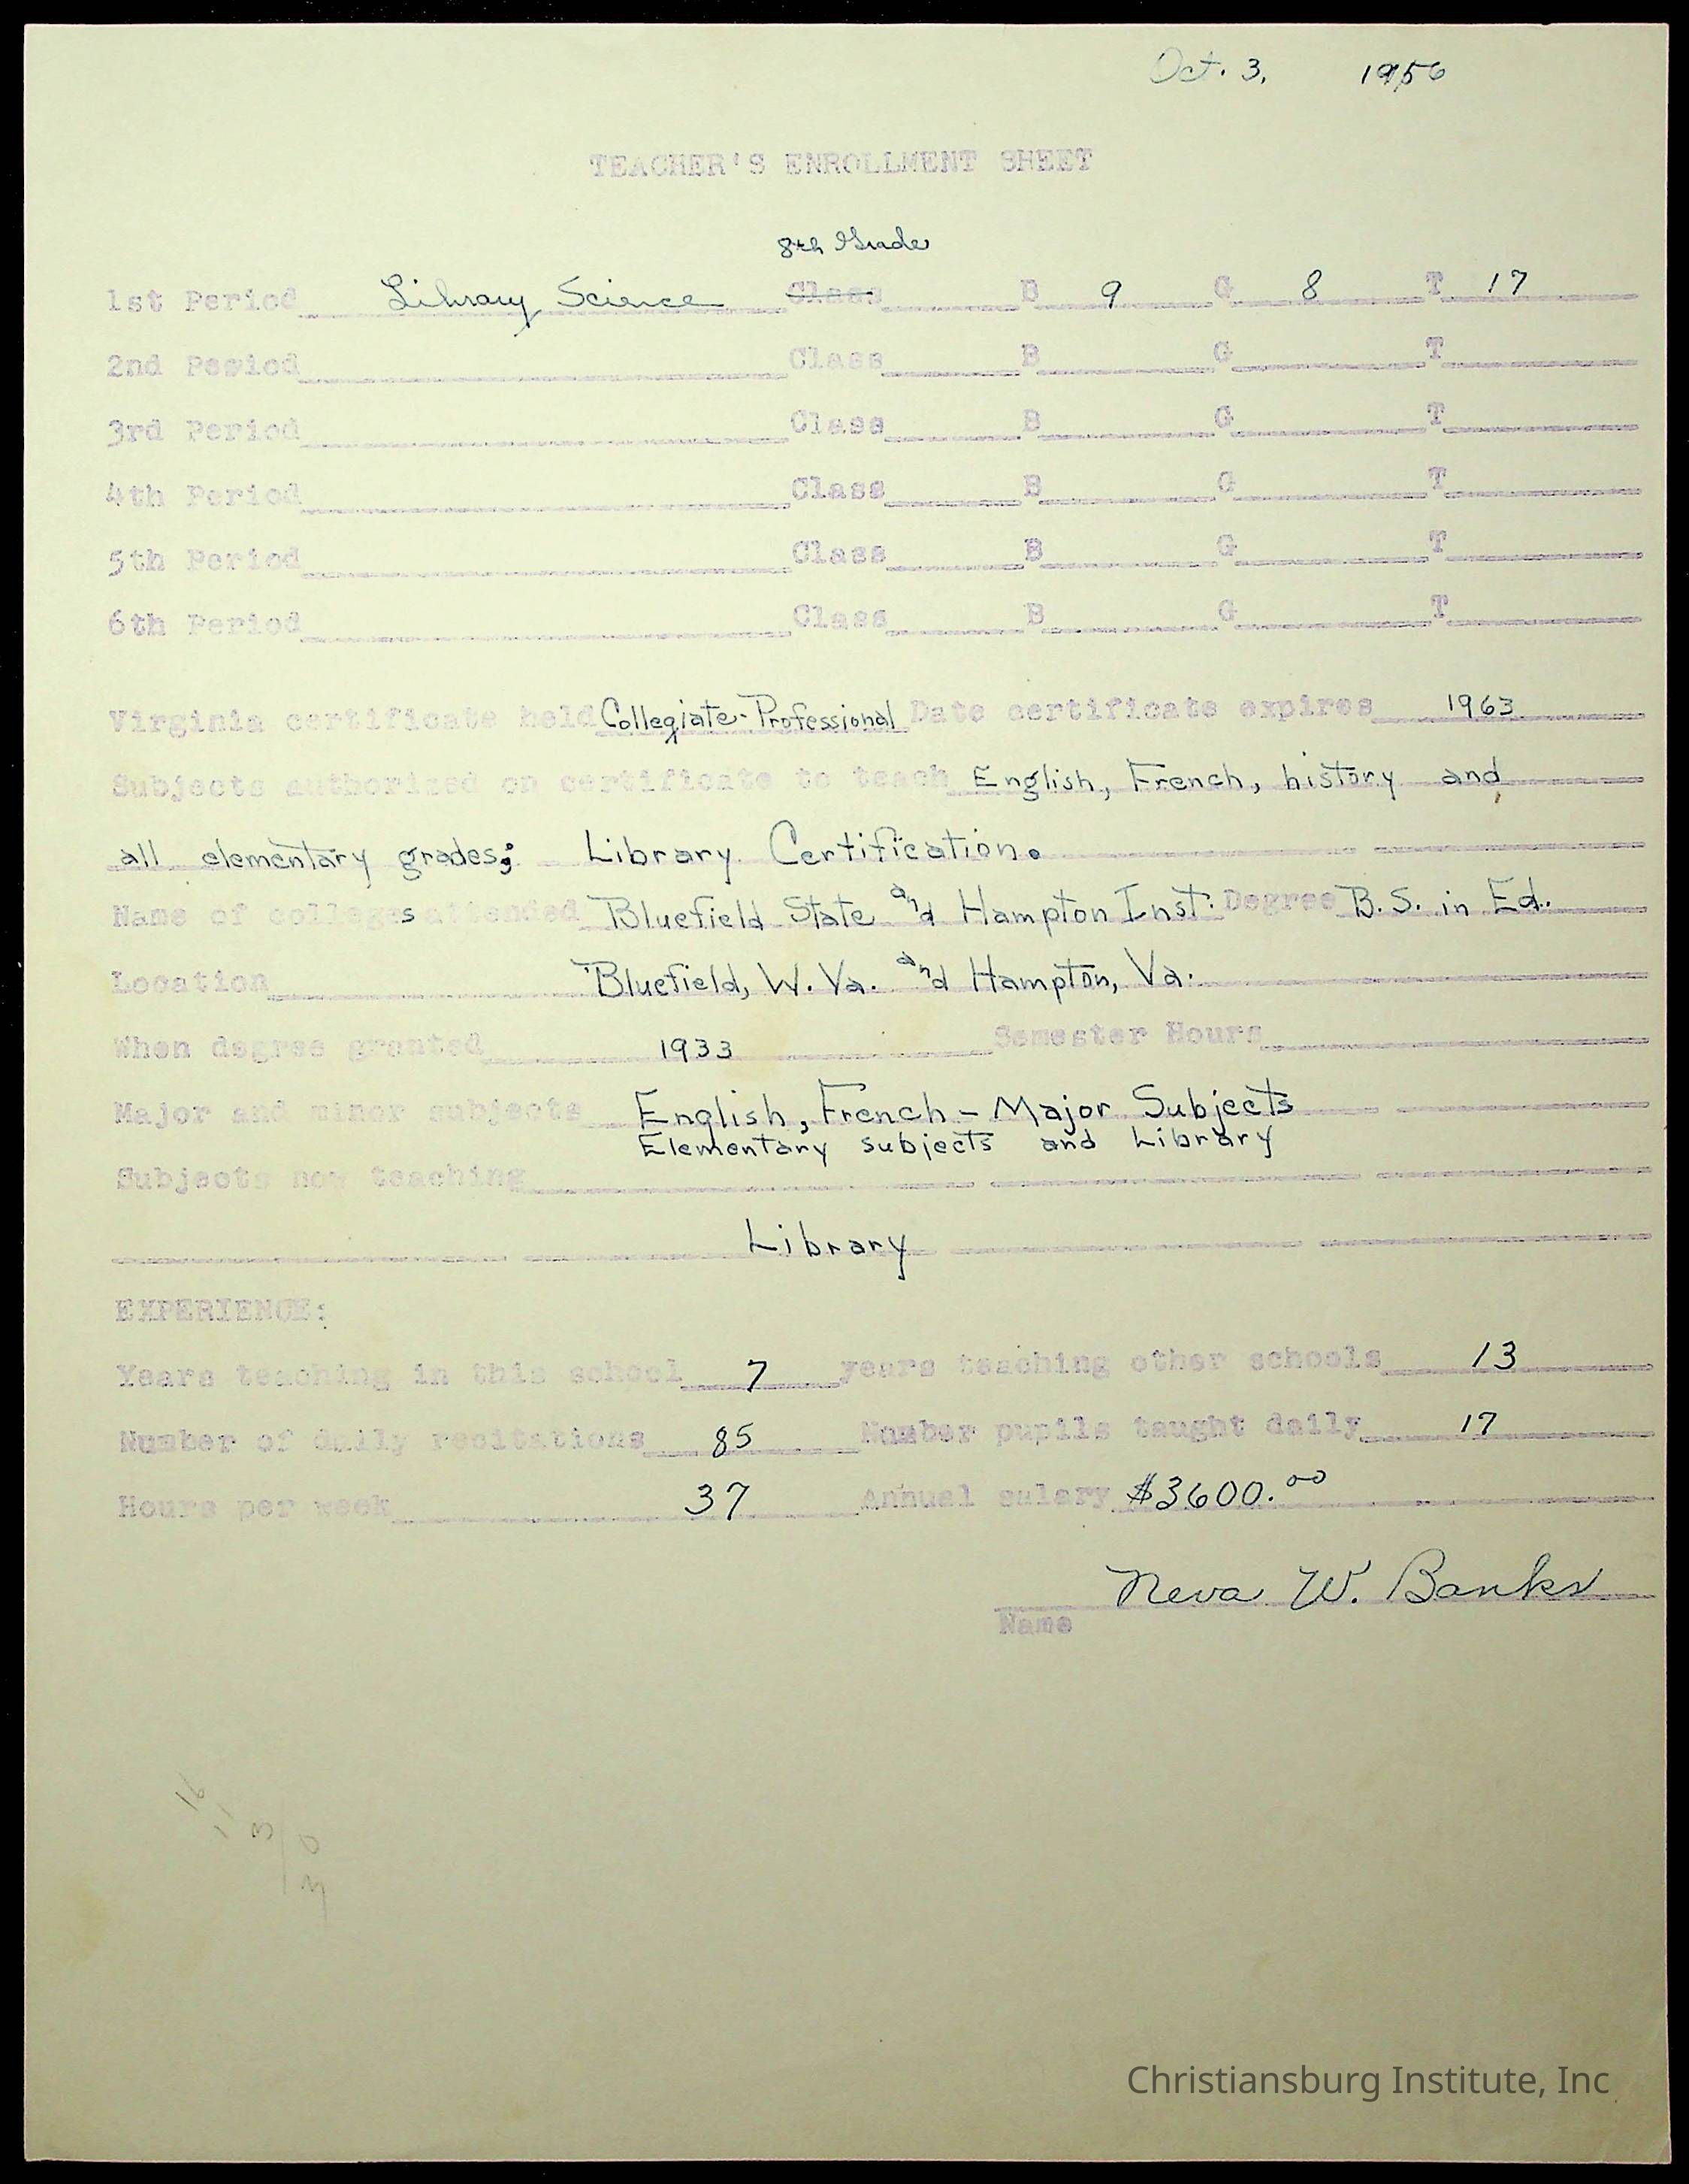 Oct. 3, 1956
TEACHER'S ENROLLMENT SHEET
8th Grade
1st Period Library Science Class B 9 G 8 T 17
2nd Period Class B G T
3rd Period Class B G T
4th Period Class B G T
5th Period Class B G T
6th Period Class B G T
Virginia certificate held Collegiate-Professional Date certificate expires 1963
Subjects authorized on certificate to teach English, French, history and
all elementary grades; Library Certification.
Name of colleges attended Bluefield State and Hampton Inst. Degree B.S. in Ed.
Location Bluefield, W. Va. and Hampton, Va.
When degree granted 1933 Semester Hours
Major and minor subjects English, French - Major Subjects
Elementary subjects and Library
Subjects now teaching
Library
EXPERIENCE:
Years teaching in this school 7 years teaching other schools 13
Number of daily recitations 85 Number pupils taught daily 17
Hours per week 37 Annual salary $3600.00
Neva W. Banks
Name
Christiansburg Institute, Inc